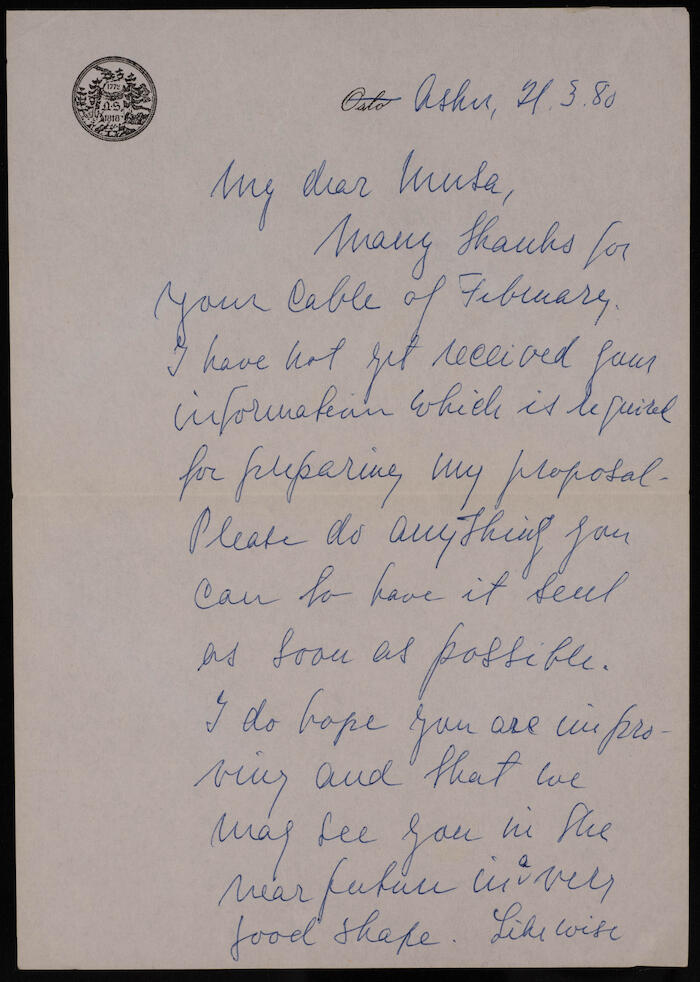 1772
D.S.
1818
Oslo Asker, 21.3.80
My dear Musa,
Many thanks for
your cable of February.
I have not yet received your
information which is required
for preparing my proposal.
Please do anything you
can to have it sent
as soon as possible.
I do hope you are impro-
ving and that we
may see you in the
near future in a very
good shape. Likewise